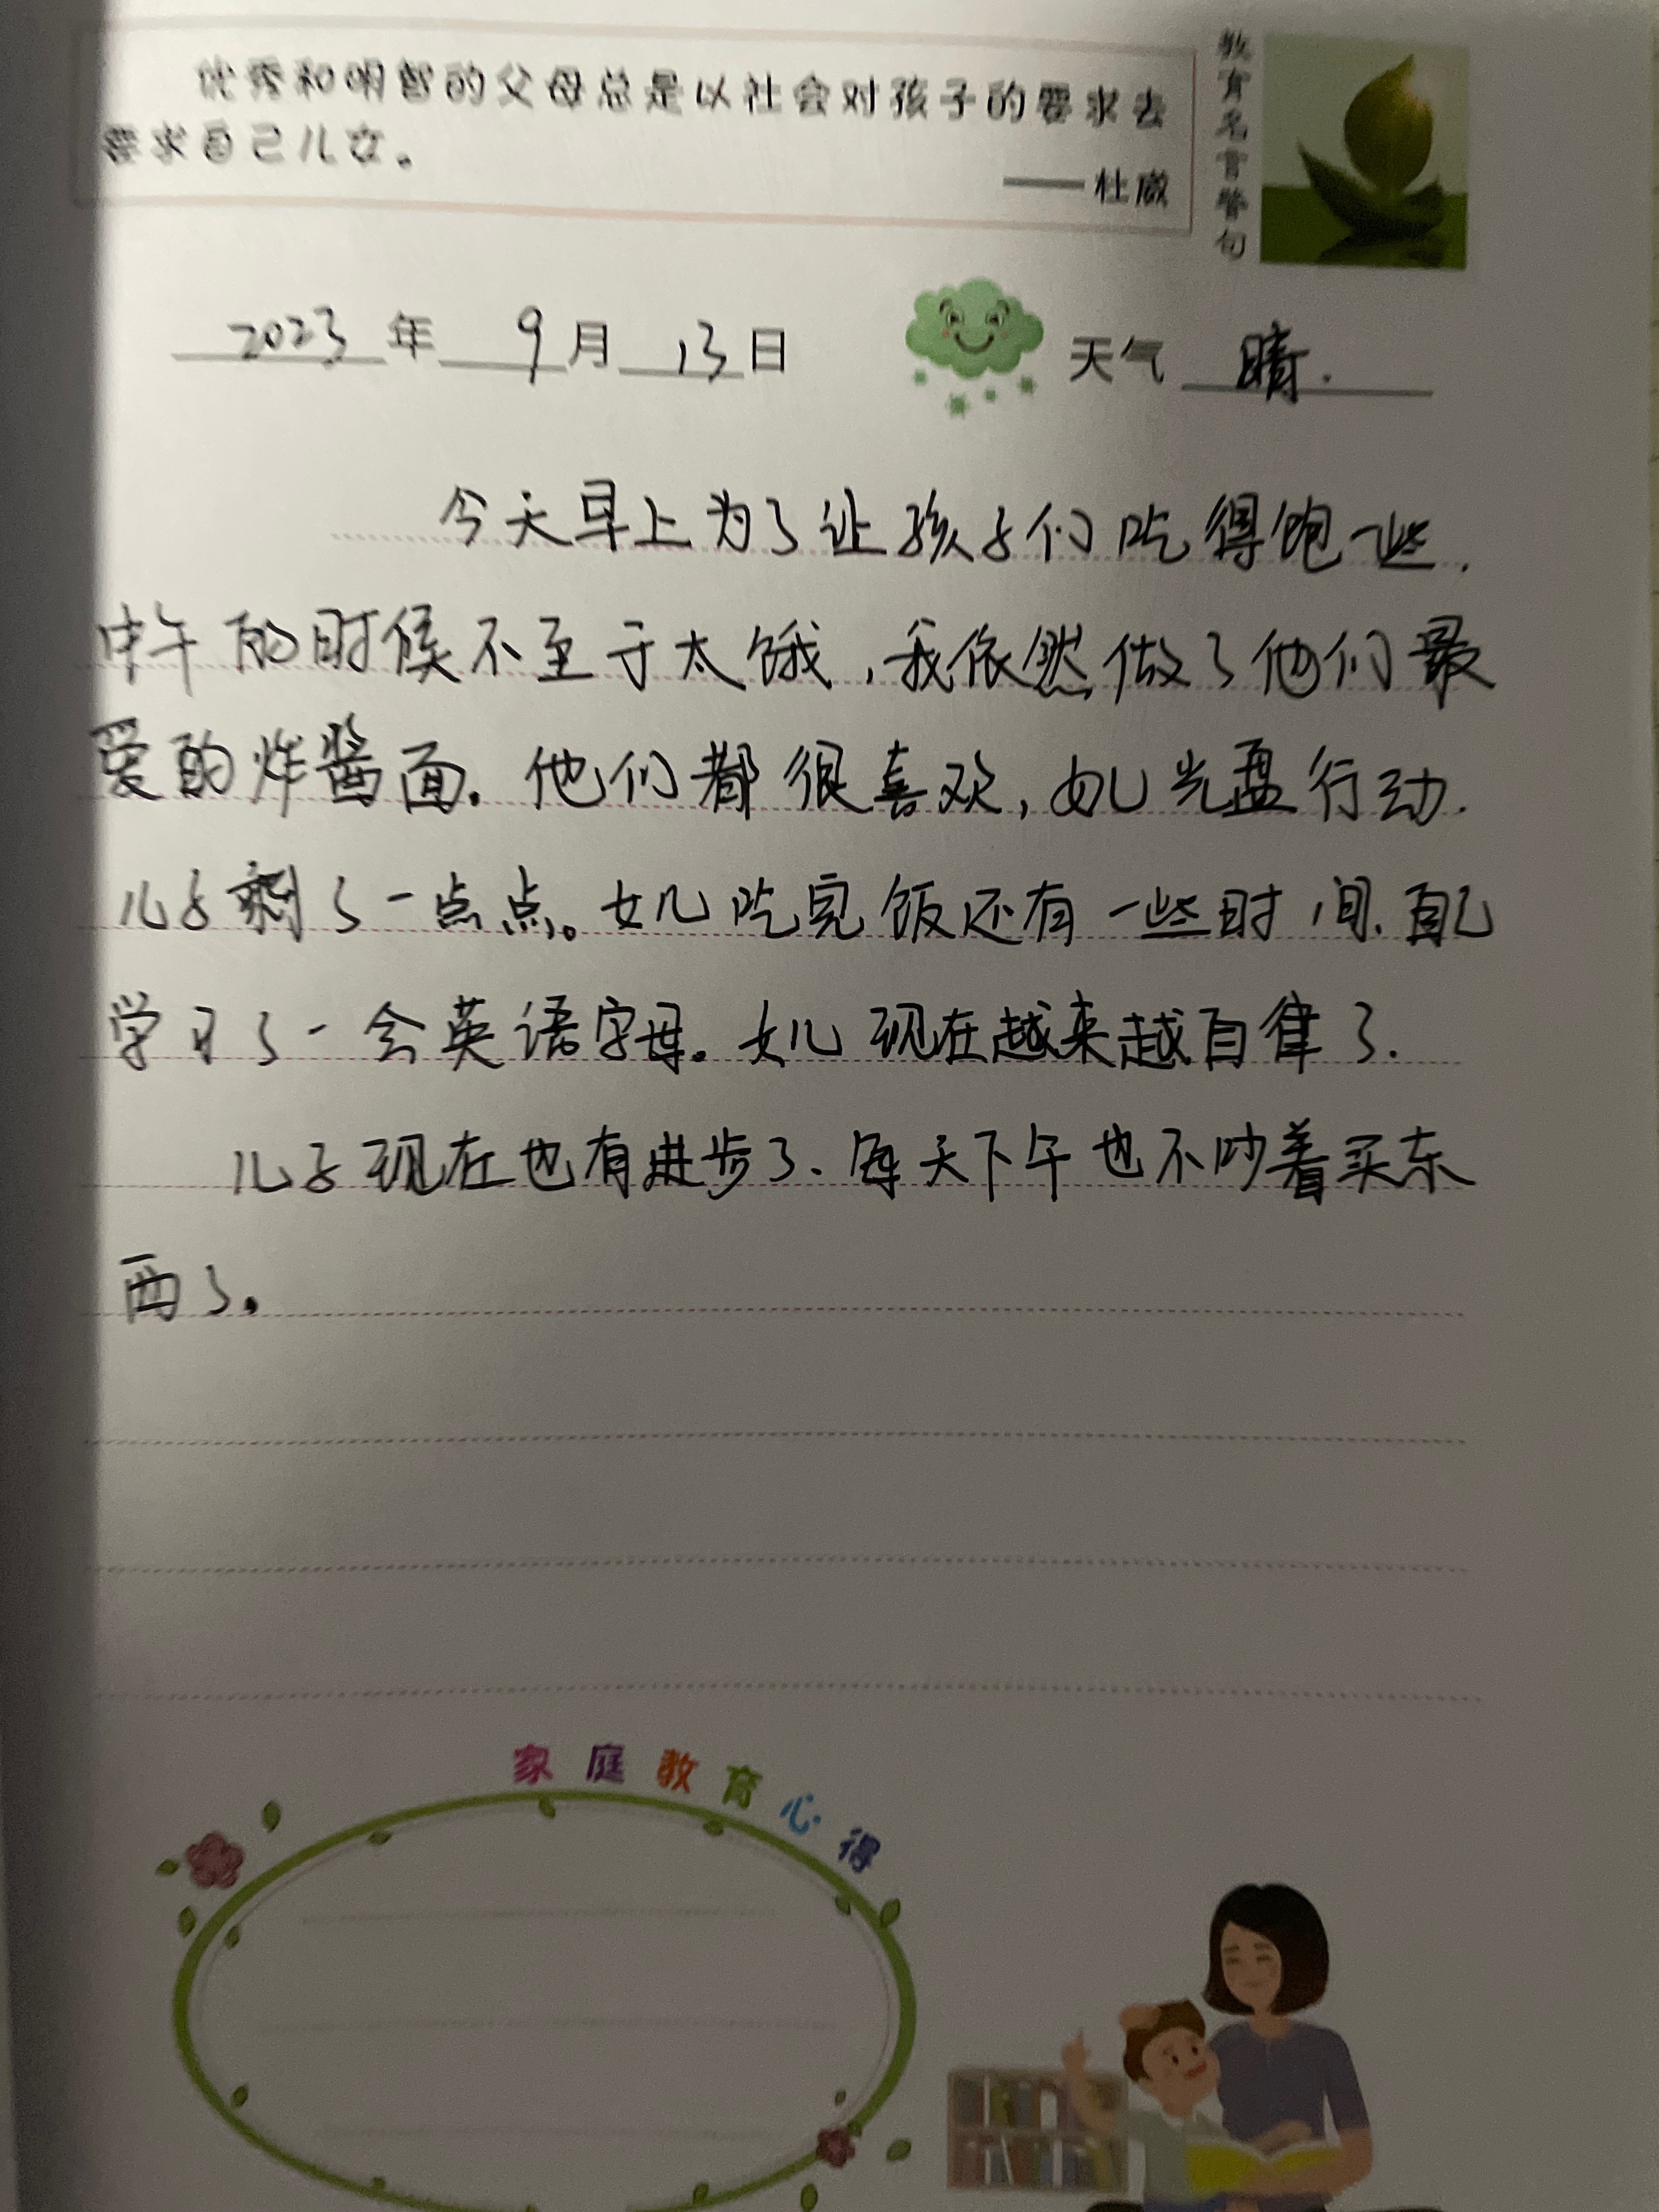 优秀和明智的父母总是以社会对孩子的要求去
要求自己儿女。
——杜威
教育名言警句
2023年 9月13日
天气 晴.
今天早上为了让孩子们吃得饱一些.
中午的时候不至于太饿,我依然做了他们最
爱的炸酱面.他们都很喜欢,女儿光盘行动.
儿子剩了一点点。女儿吃完饭还有一些时间.自己
学习了一会英语字母。女儿现在越来越自律了.
儿子现在也有进步了、每天下午也不吵着买东
西了。
家庭教育心得